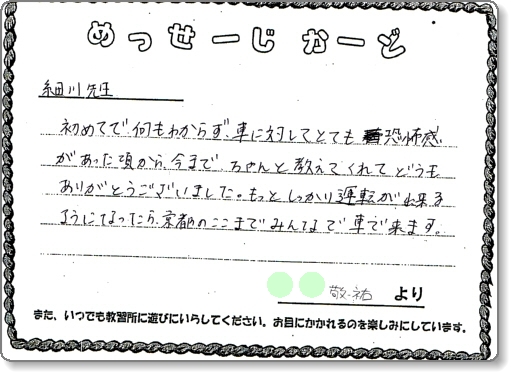 めっせーじ かーど
細川先生
初めてで、何もわからず、車に対してとても恐怖感
があった頃から、今まで、ちゃんと教えてくれてどうも
ありがとうございました。もっとしっかり運転が出来る
ようになったら、京都のここまでみんなで車で来ます。
敬祐 より
また、いつでも教習所に遊びにいらしてください。お目にかかれるのを楽しみにしています。